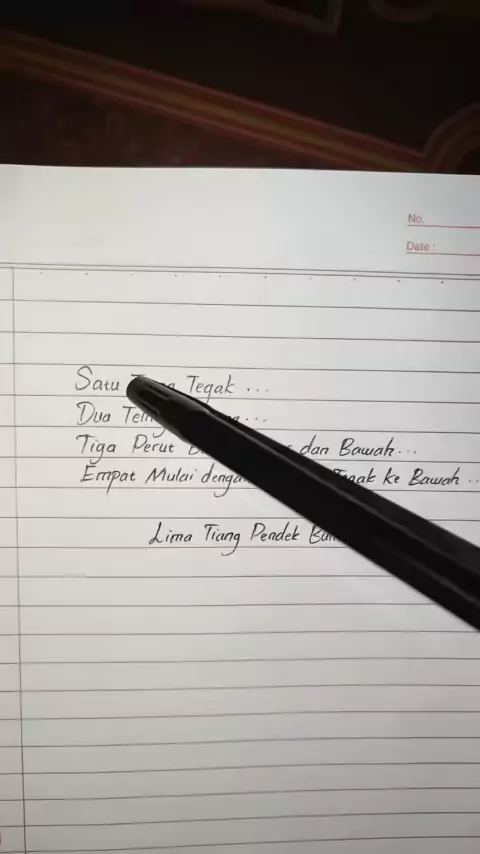 No.
Date :
Satu Tegak ...
Dua ...
Tiga Perut dan Bawah...
Empat Mulai dengan ke Bawah ..
Lima Tiang Pendek